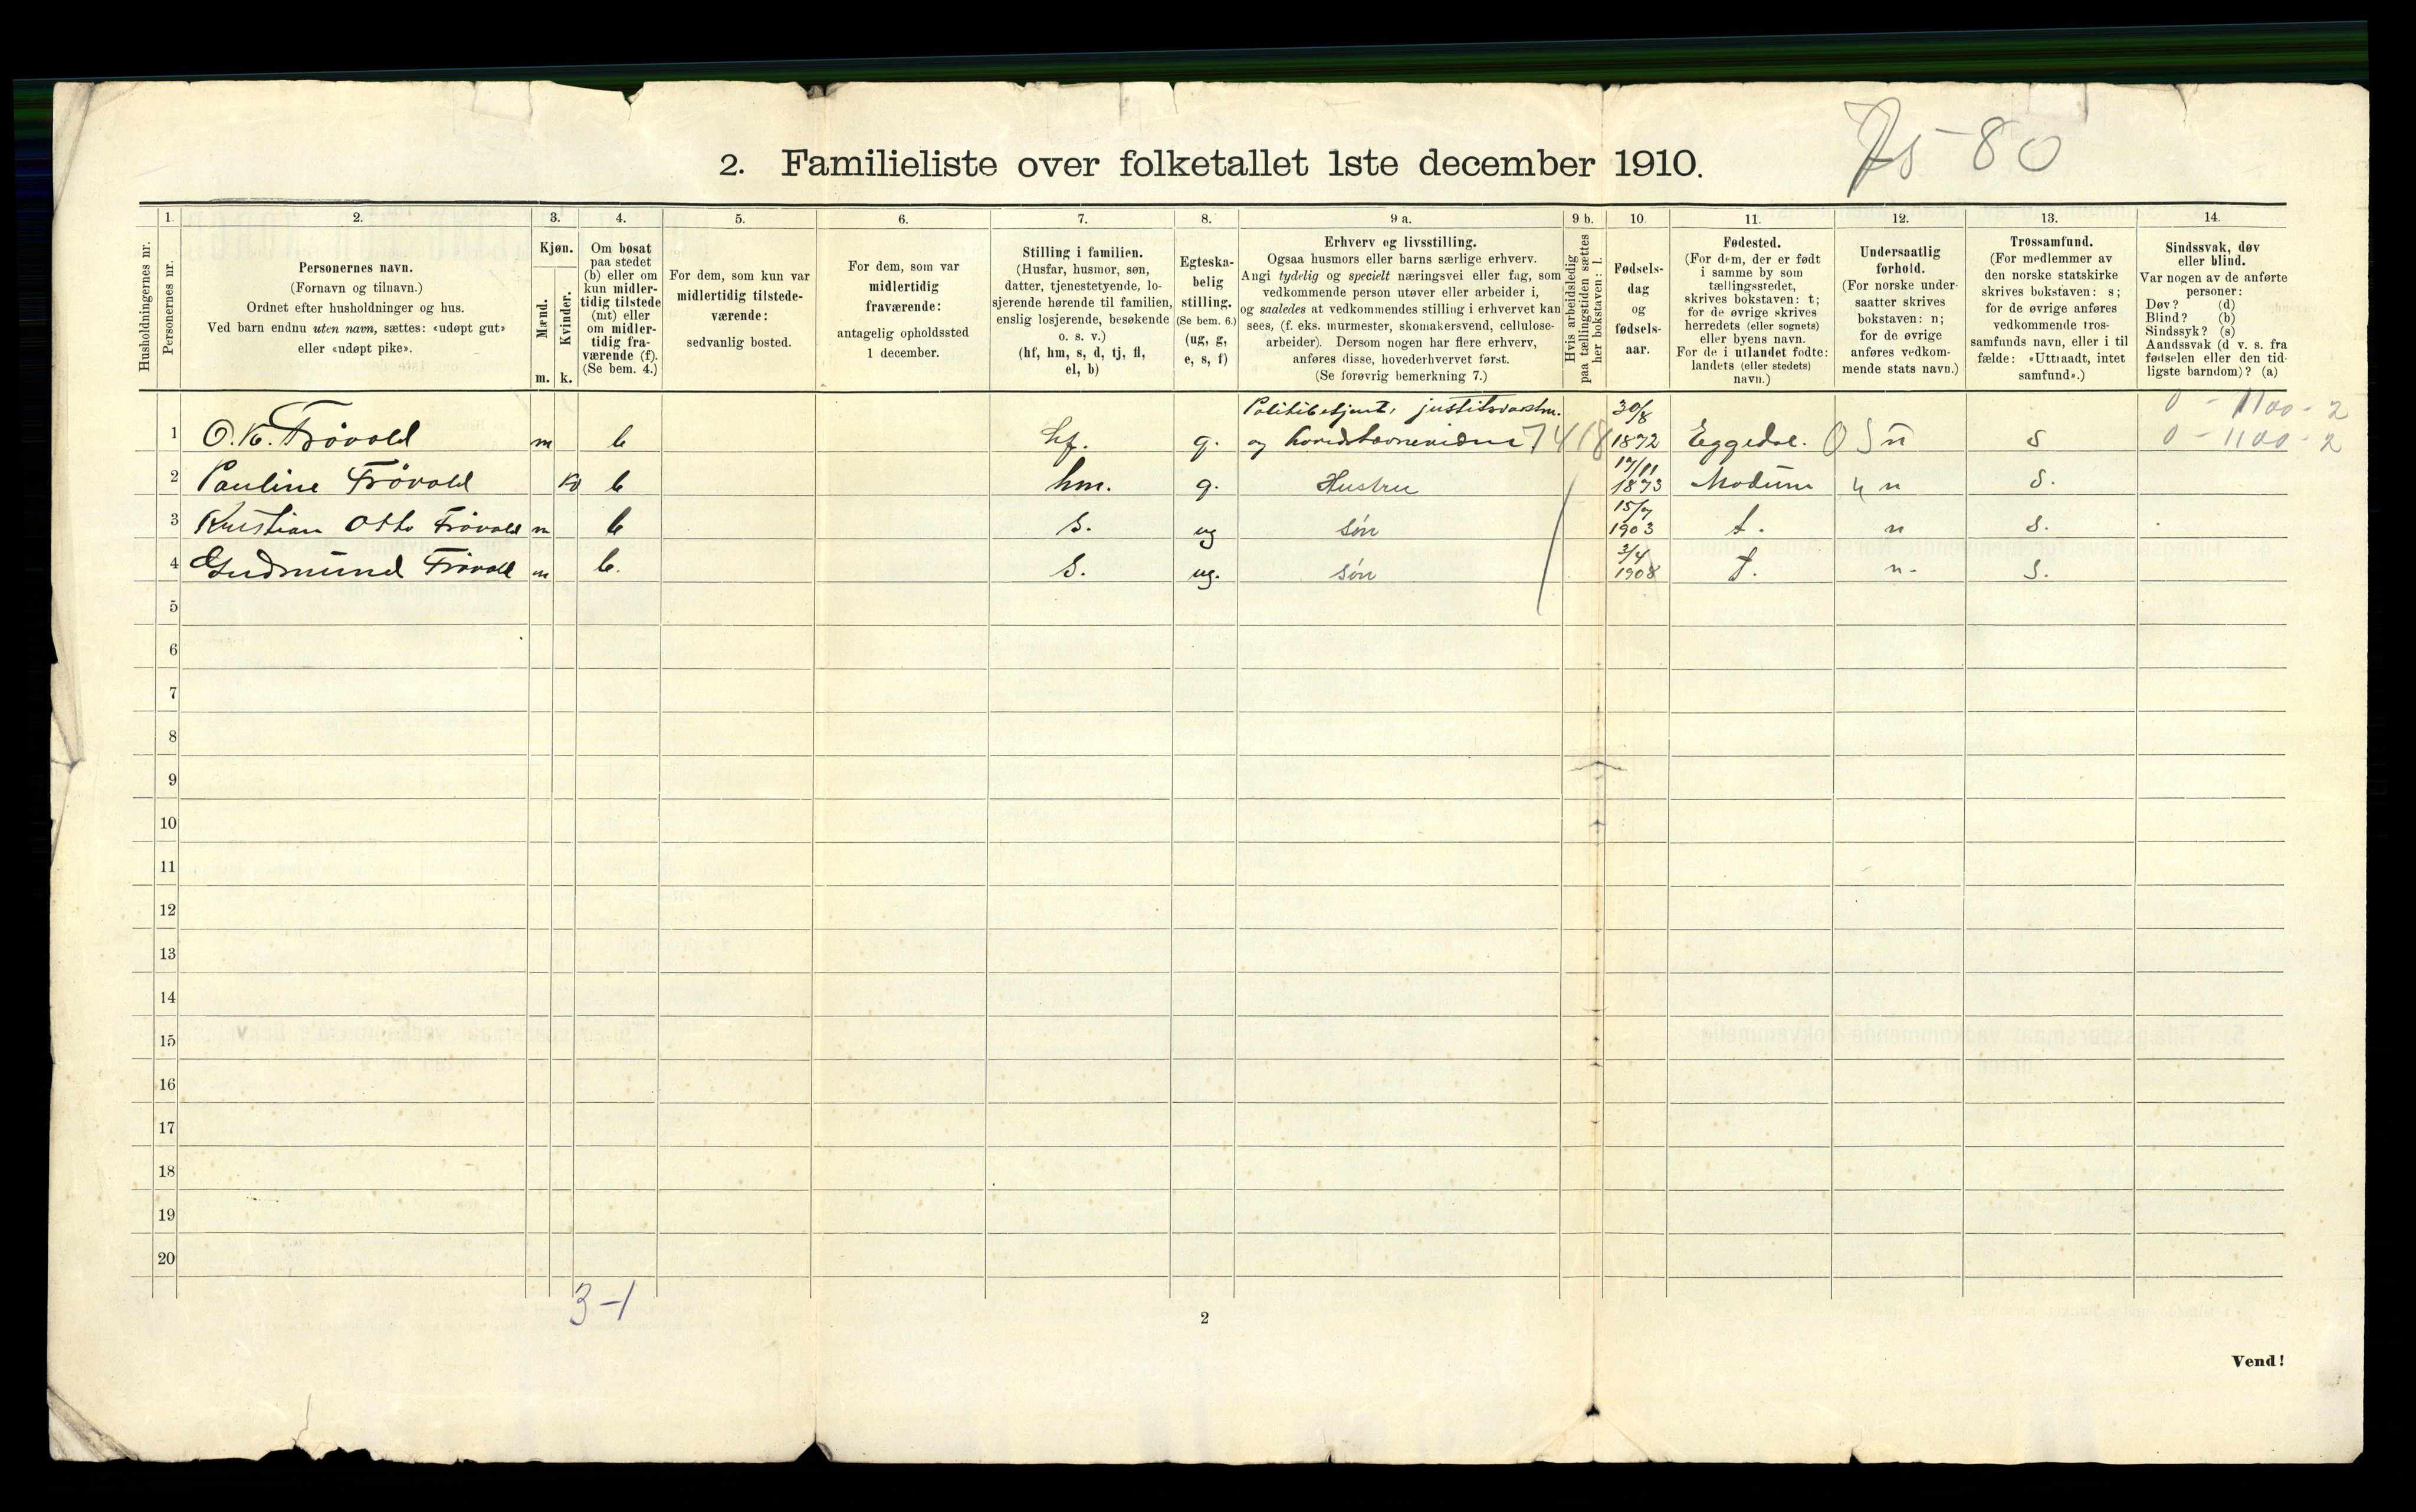 75-80
2. Familieliste over folketallet 1ste december 1910.
1. 2. 3. 4. 5. 6. 7. 8. 9 a. 9 b. 10. 11. 12. 13. 14.
Husholdningernes nr.
Personernes nr.
Personernes navn.
(Fornavn og tilnavn.)
Ordnet efter husholdninger og hus.
Ved barn endnu uten navn, sættes: «udøpt gut»
eller «udøpt pike».
Kjøn.
Mænd.
Kvinder.
m. k.
Om bosat
paa stedet
(b) eller om
kun midler-
tidig tilstede
(mt) eller
om midler-
tidig fra-
værende (f).
(Se bem. 4.)
For dem, som kun var
midlertidig tilstede-
værende:
sedvanlig bosted.
For dem, som var
midlertidig
fraværende:
antagelig opholdssted
1 december.
Stilling i familien.
(Husfar, husmor, søn,
datter, tjenestetyende, lo-
sjerende hørende til familien,
enslig losjerende, besøkende
o. s. v.)
(hf, hm, s, d, tj, fl,
el, b)
Egteska-
belig
stilling.
(Se bem. 6.)
(ug, g,
e, s, f)
Erhverv og livsstilling.
Ogsaa husmors eller barns særlige erhverv.
Angi tydelig og specielt næringsvei eller fag, som
vedkommende person utøver eller arbeider i,
og saaledes at vedkommendes stilling i erhvervet kan
sees, (f. eks. murmester, skomakersvend, cellulose-
arbeider). Dersom nogen har flere erhverv,
anføres disse, hovederhvervet først.
(Se forøvrig bemerkning 7.)
Hvis arbeidsledig
paa tællingstiden sættes
her bokstaven: l.
Fødsels-
dag
og
fødsels-
aar.
Fødested.
(For dem, der er født
i samme by som
tællingsstedet,
skrives bokstaven: t;
for de øvrige skrives
herredets (eller sognets)
eller byens navn.
For de i utlandet fødte:
landets (eller stedets)
navn.)
Undersaatlig
forhold.
(For norske under-
saatter skrives
bokstaven: n;
for de øvrige
anføres vedkom-
mende stats navn.)
Trossamfund.
(For medlemmer av
den norske statskirke
skrives bokstaven: s;
for de øvrige anføres
vedkommende tros-
samfunds navn, eller i til
fælde: «Uttraadt, intet
samfund».)
Sindssvak, døv
eller blind.
Var nogen av de anførte
personer:
Døv? (d)
Blind? (b)
Sindssyk? (s)
Aandssvak (d v. s. fra
fødselen eller den tid-
ligste barndom)? (a)
Politibetjent, 30/8 0 - 1100 - 2
1 O. K. Frövold m b hf. g. og 7418 1872 Eggedal. 05 n s 0 - 1100 - 2
17/11
2 Pauline Frövold k b hm. g. Hustru 1873 Modum 4 n s.
15/7
3 Kristian Otto Frövold m b s. ug søn 1903 t. n s.
3/4
4 Gudmund Frövold m b. s. ug. søn 1908 t. n. s.
5
6
7
8
9
10
11
12
13
14
15
16
17
18
19
20
3-1
2
Vend!